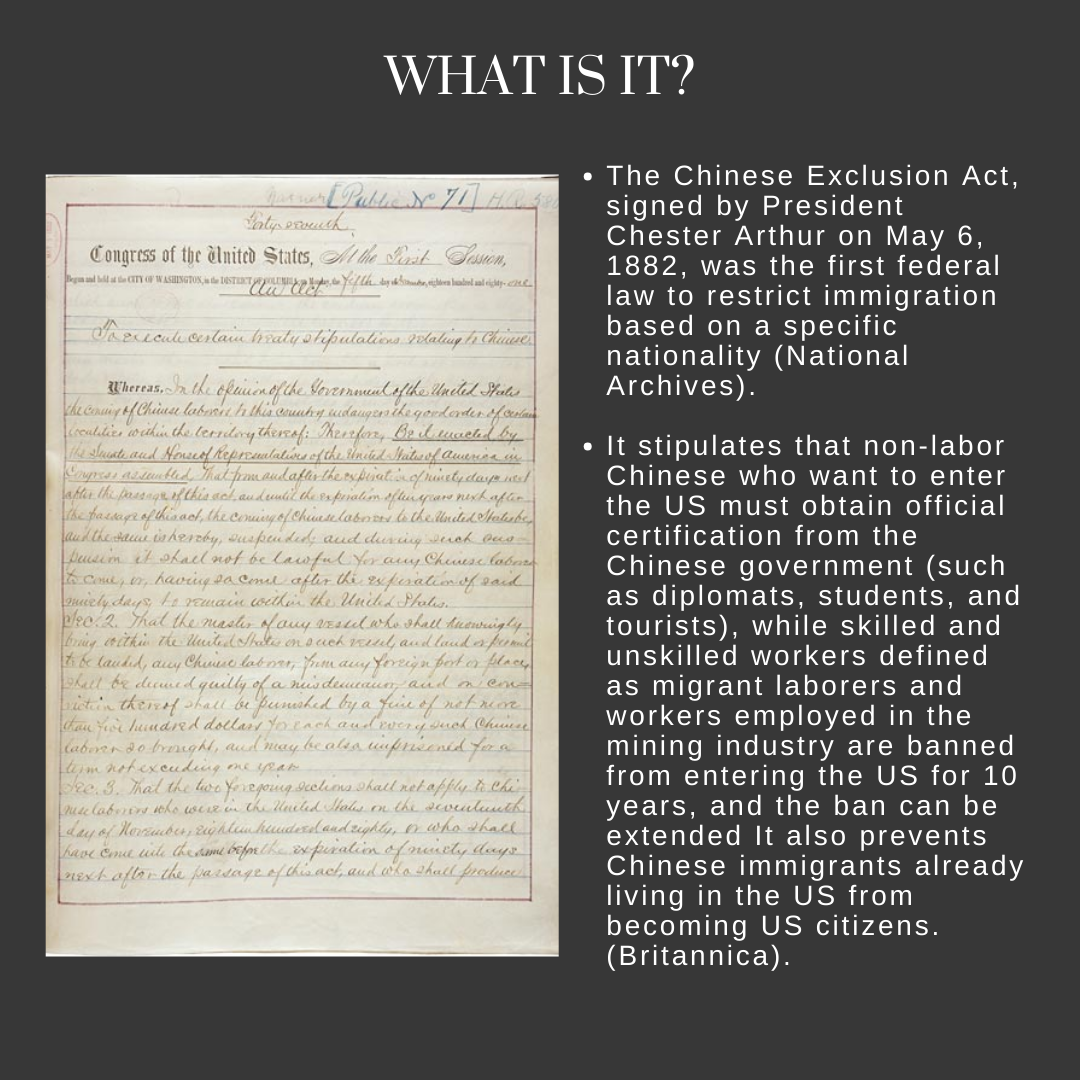 WHAT IS IT?
[Public No 71]
Forty-seventh
Congress of the United States, At the First Session,
Begun and held at the CITY OF WASHINGTON, in the DISTRICT OF COLUMBIA, on Monday, the fifth day of December, eighteen hundred and eighty-one
An Act
To execute certain treaty stipulations relating to Chinese
Whereas, In the opinion of the Government of the United States
the coming of Chinese laborers to this country endangers the good order of certain
localities within the territory thereof: Therefore, Be it enacted by
the Senate and House of Representatives of the United States of America in
Congress assembled, That from and after the expiration of ninety days next
after the passage of this act, and until the expiration of ten years next after
the passage of this act, the coming of Chinese laborers to the United States be,
and the same is hereby, suspended; and during such sus-
pension it shall not be lawful for any Chinese laborer
to come, or, having so come after the expiration of said
ninety days, to remain within the United States.
Sec. 2. That the master of any vessel who shall knowingly
bring within the United States on such vessel, and land or permit
to be landed, any Chinese laborer, from any foreign port or place,
shall be deemed guilty of a misdemeanor, and on con-
viction thereof shall be punished by a fine of not more
than five hundred dollars for each and every such Chinese
laborer so brought, and may be also imprisoned for a
term not exceeding one year.
Sec. 3. That the two foregoing sections shall not apply to Chi-
nese laborers who were in the United States on the seventeenth
day of November, eighteen hundred and eighty, or who shall
have come into the same before the expiration of ninety days
next after the passage of this act, and who shall produce
• The Chinese Exclusion Act,
signed by President
Chester Arthur on May 6,
1882, was the first federal
law to restrict immigration
based on a specific
nationality (National
Archives).
• It stipulates that non-labor
Chinese who want to enter
the US must obtain official
certification from the
Chinese government (such
as diplomats, students, and
tourists), while skilled and
unskilled workers defined
as migrant laborers and
workers employed in the
mining industry are banned
from entering the US for 10
years, and the ban can be
extended It also prevents
Chinese immigrants already
living in the US from
becoming US citizens.
(Britannica).